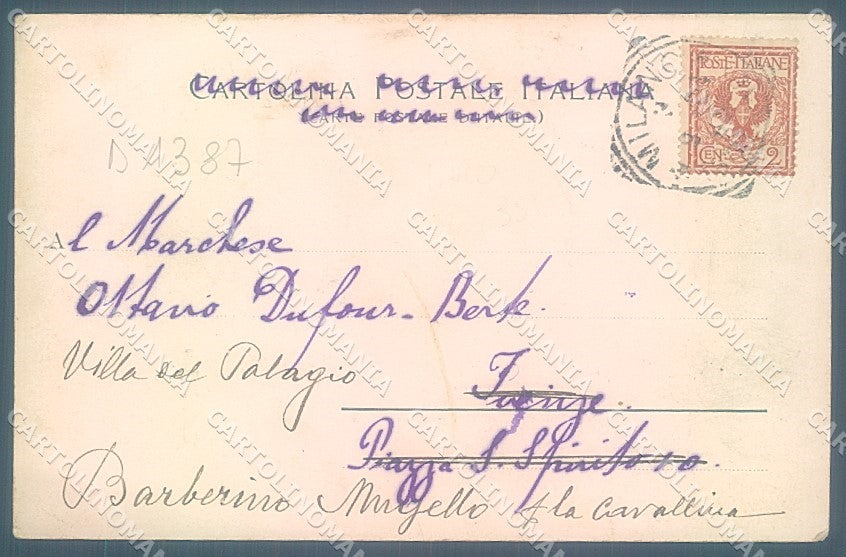 CARTOLINA POSTALE ITALIANA
(CARTE POSTALE D'ITALIE)
MILANO
POSTE·ITALIANE
CEN. 2
D 1387
Al Marchese
Ottavio Dufour-Berte.
Villa del Palagio
Firenze
Piazza S. Spirito 10.
Barberino Mugello
la Cavallina
CARTOLINOMANIA